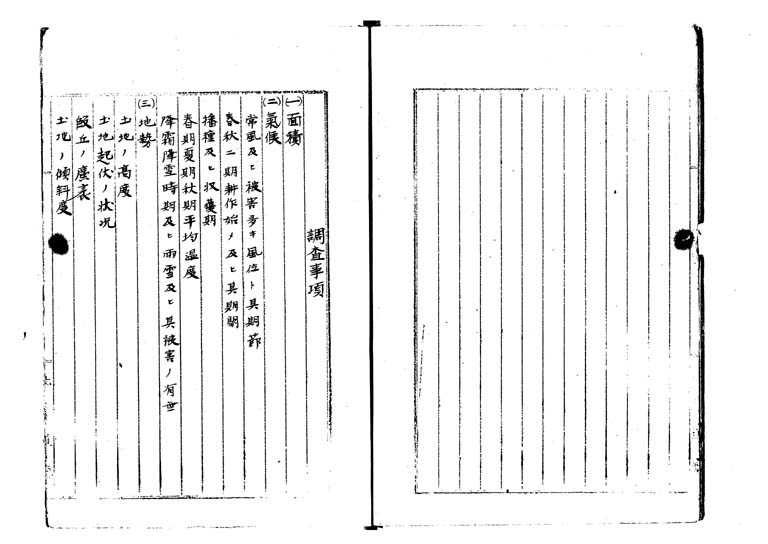 調査事項
(一)面積
(二)氣候
常風及ヒ被害多キ風位ト其期節
春秋二期耕作始メ及ヒ其期間
播種及ヒ収穫期
春期夏期秋期平均温度
降霜降雪時期及ヒ雨雪及ヒ其被害ノ有無
(三)地勢
土地ノ高度
土地起伏ノ状况
土地ノ傾斜度